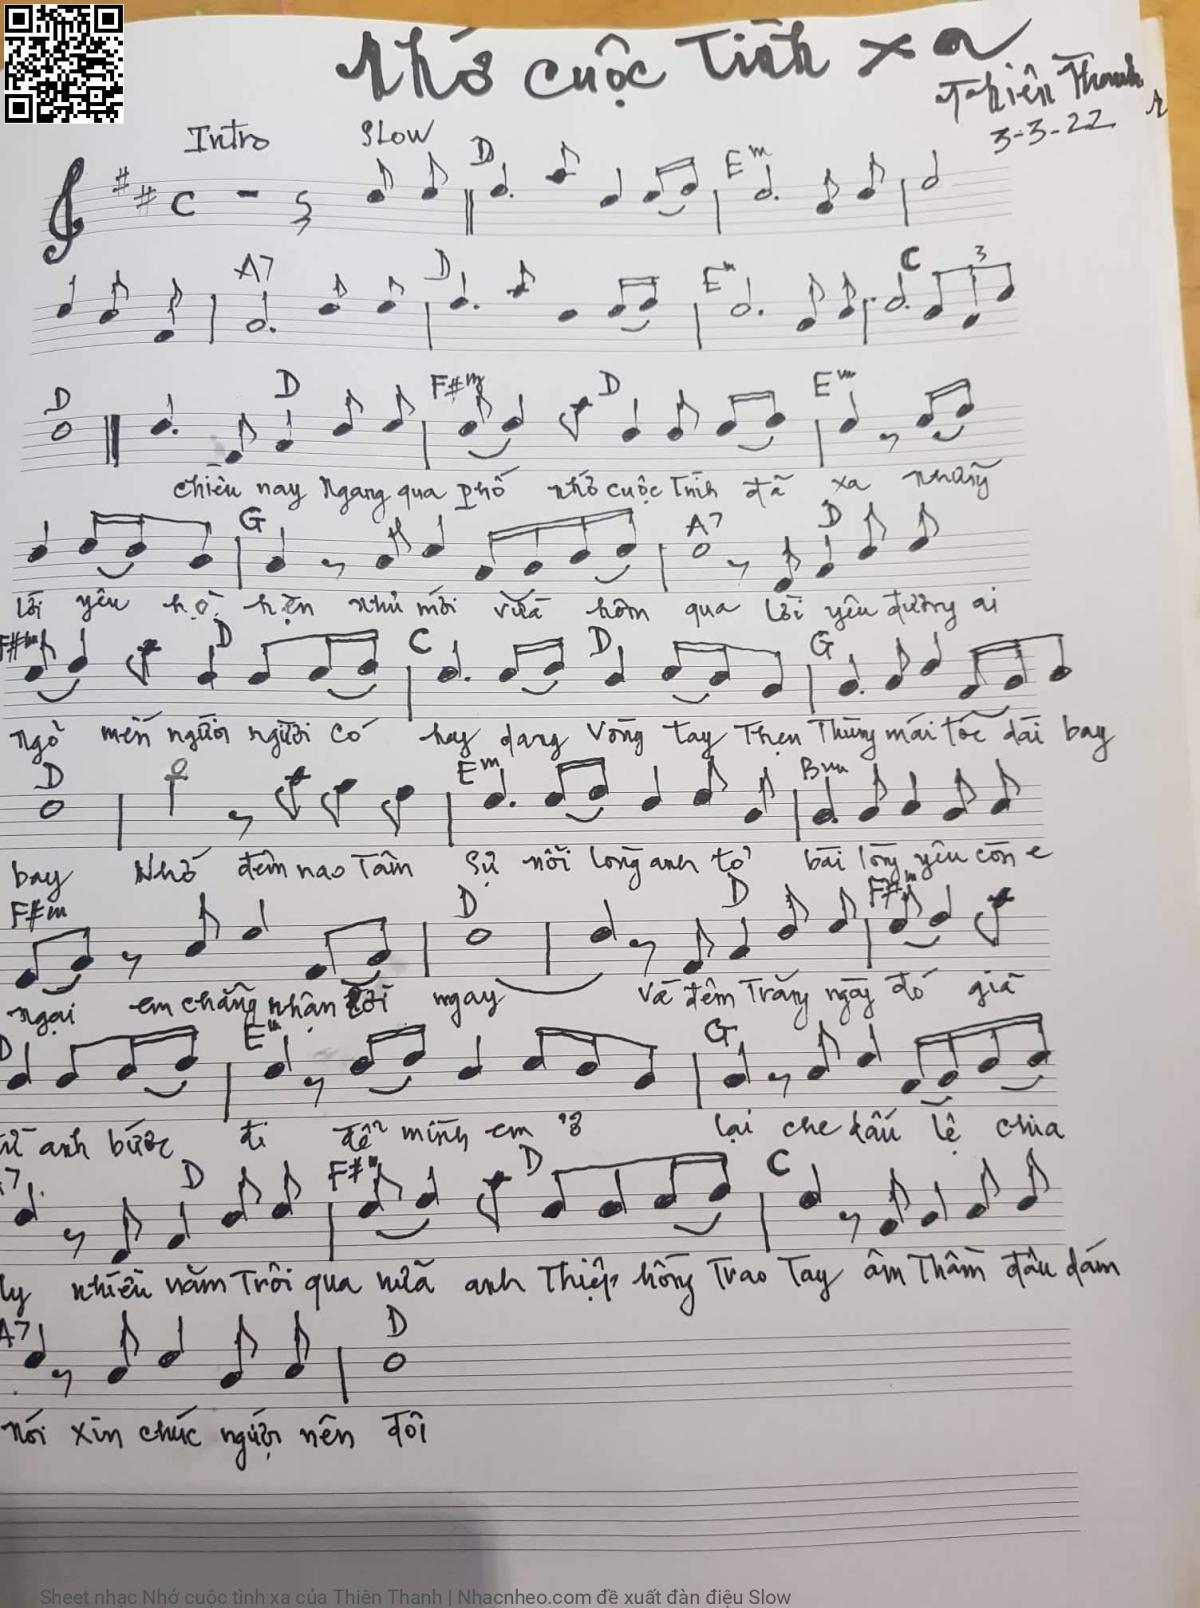 Nhớ cuộc tình xa
Thiên Thanh
3-3-22
Intro SLOW D Em
A7 D Em C 3
D D F#m D Em
chiều nay Ngang qua phố nhớ cuộc tình đã xa những
G A7 D
lời yêu hẹn như mới vừa hôm qua lời yêu đương ai
F#m D C D G
ngỏ mến người người có hay dang vòng tay Thẹn Thùng mái tóc dài bay
D Em Bm
bay Nhớ đêm nao Tâm Sự nỗi lòng anh tỏ bài lòng yêu còn e
F#m D D F#m
ngại em chẳng nhận lời ngay Và đêm Trăng ngày đó giã
D Em G
từ anh bước đi để mình em ở lại che dấu lệ chia
A7 D F#m D C
ly nhiều năm Trôi qua nữa anh Thiệp hồng Trao Tay âm Thầm đâu dám
A7 D
nói xin chúc người nên đôi
Sheet nhạc Nhớ cuộc tình xa của Thiên Thanh | Nhacnheo.com đề xuất đàn điệu Slow